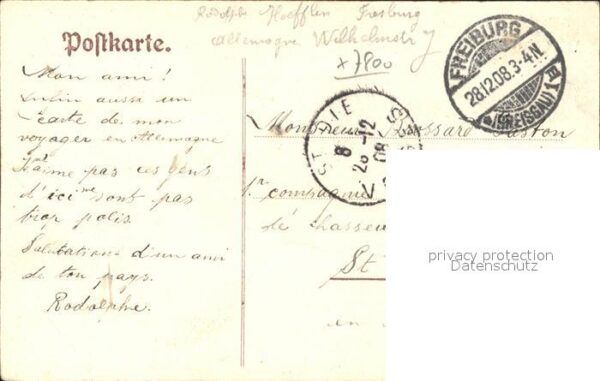 Rodolphe Hoefflin Freiburg
Allemagne Wilhelmstr 7
x7800
Postkarte.
FREIBURG
28.12.08.3-4N.
(BREISGAU) 1
Mon ami!
Enfin aussi un
carte de mon
voyage en Allemagne
J'aime pas ces gens
d'ici ils sont pas
trop polis.
Salutations d'un ami
de ton pays.
Rodolphe.
ST DIE
8
28 -12
08
Monsieur Brossard Gaston
1.r compagnie
de chasseu
St
en
privacy protection
Datenschutz